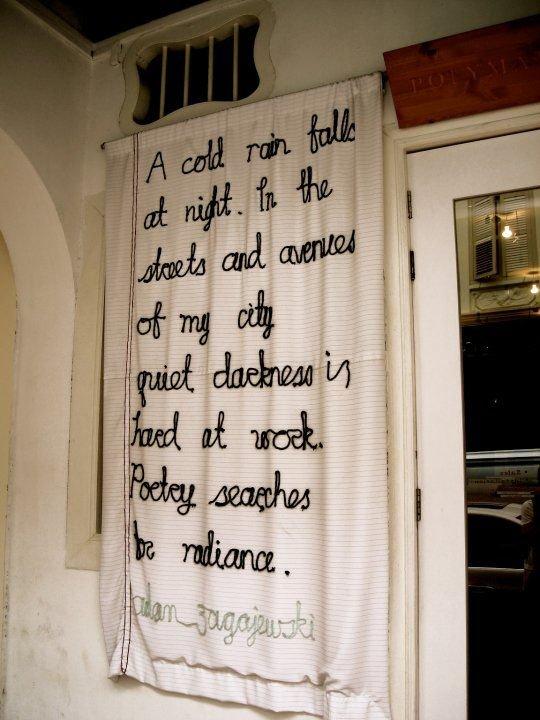 A cold rain falls
at night. In the
streets and avenues
of my city
quiet darkness is
hard at work.
Poetry searches
for radiance.
adam zagajewski
POLYMA